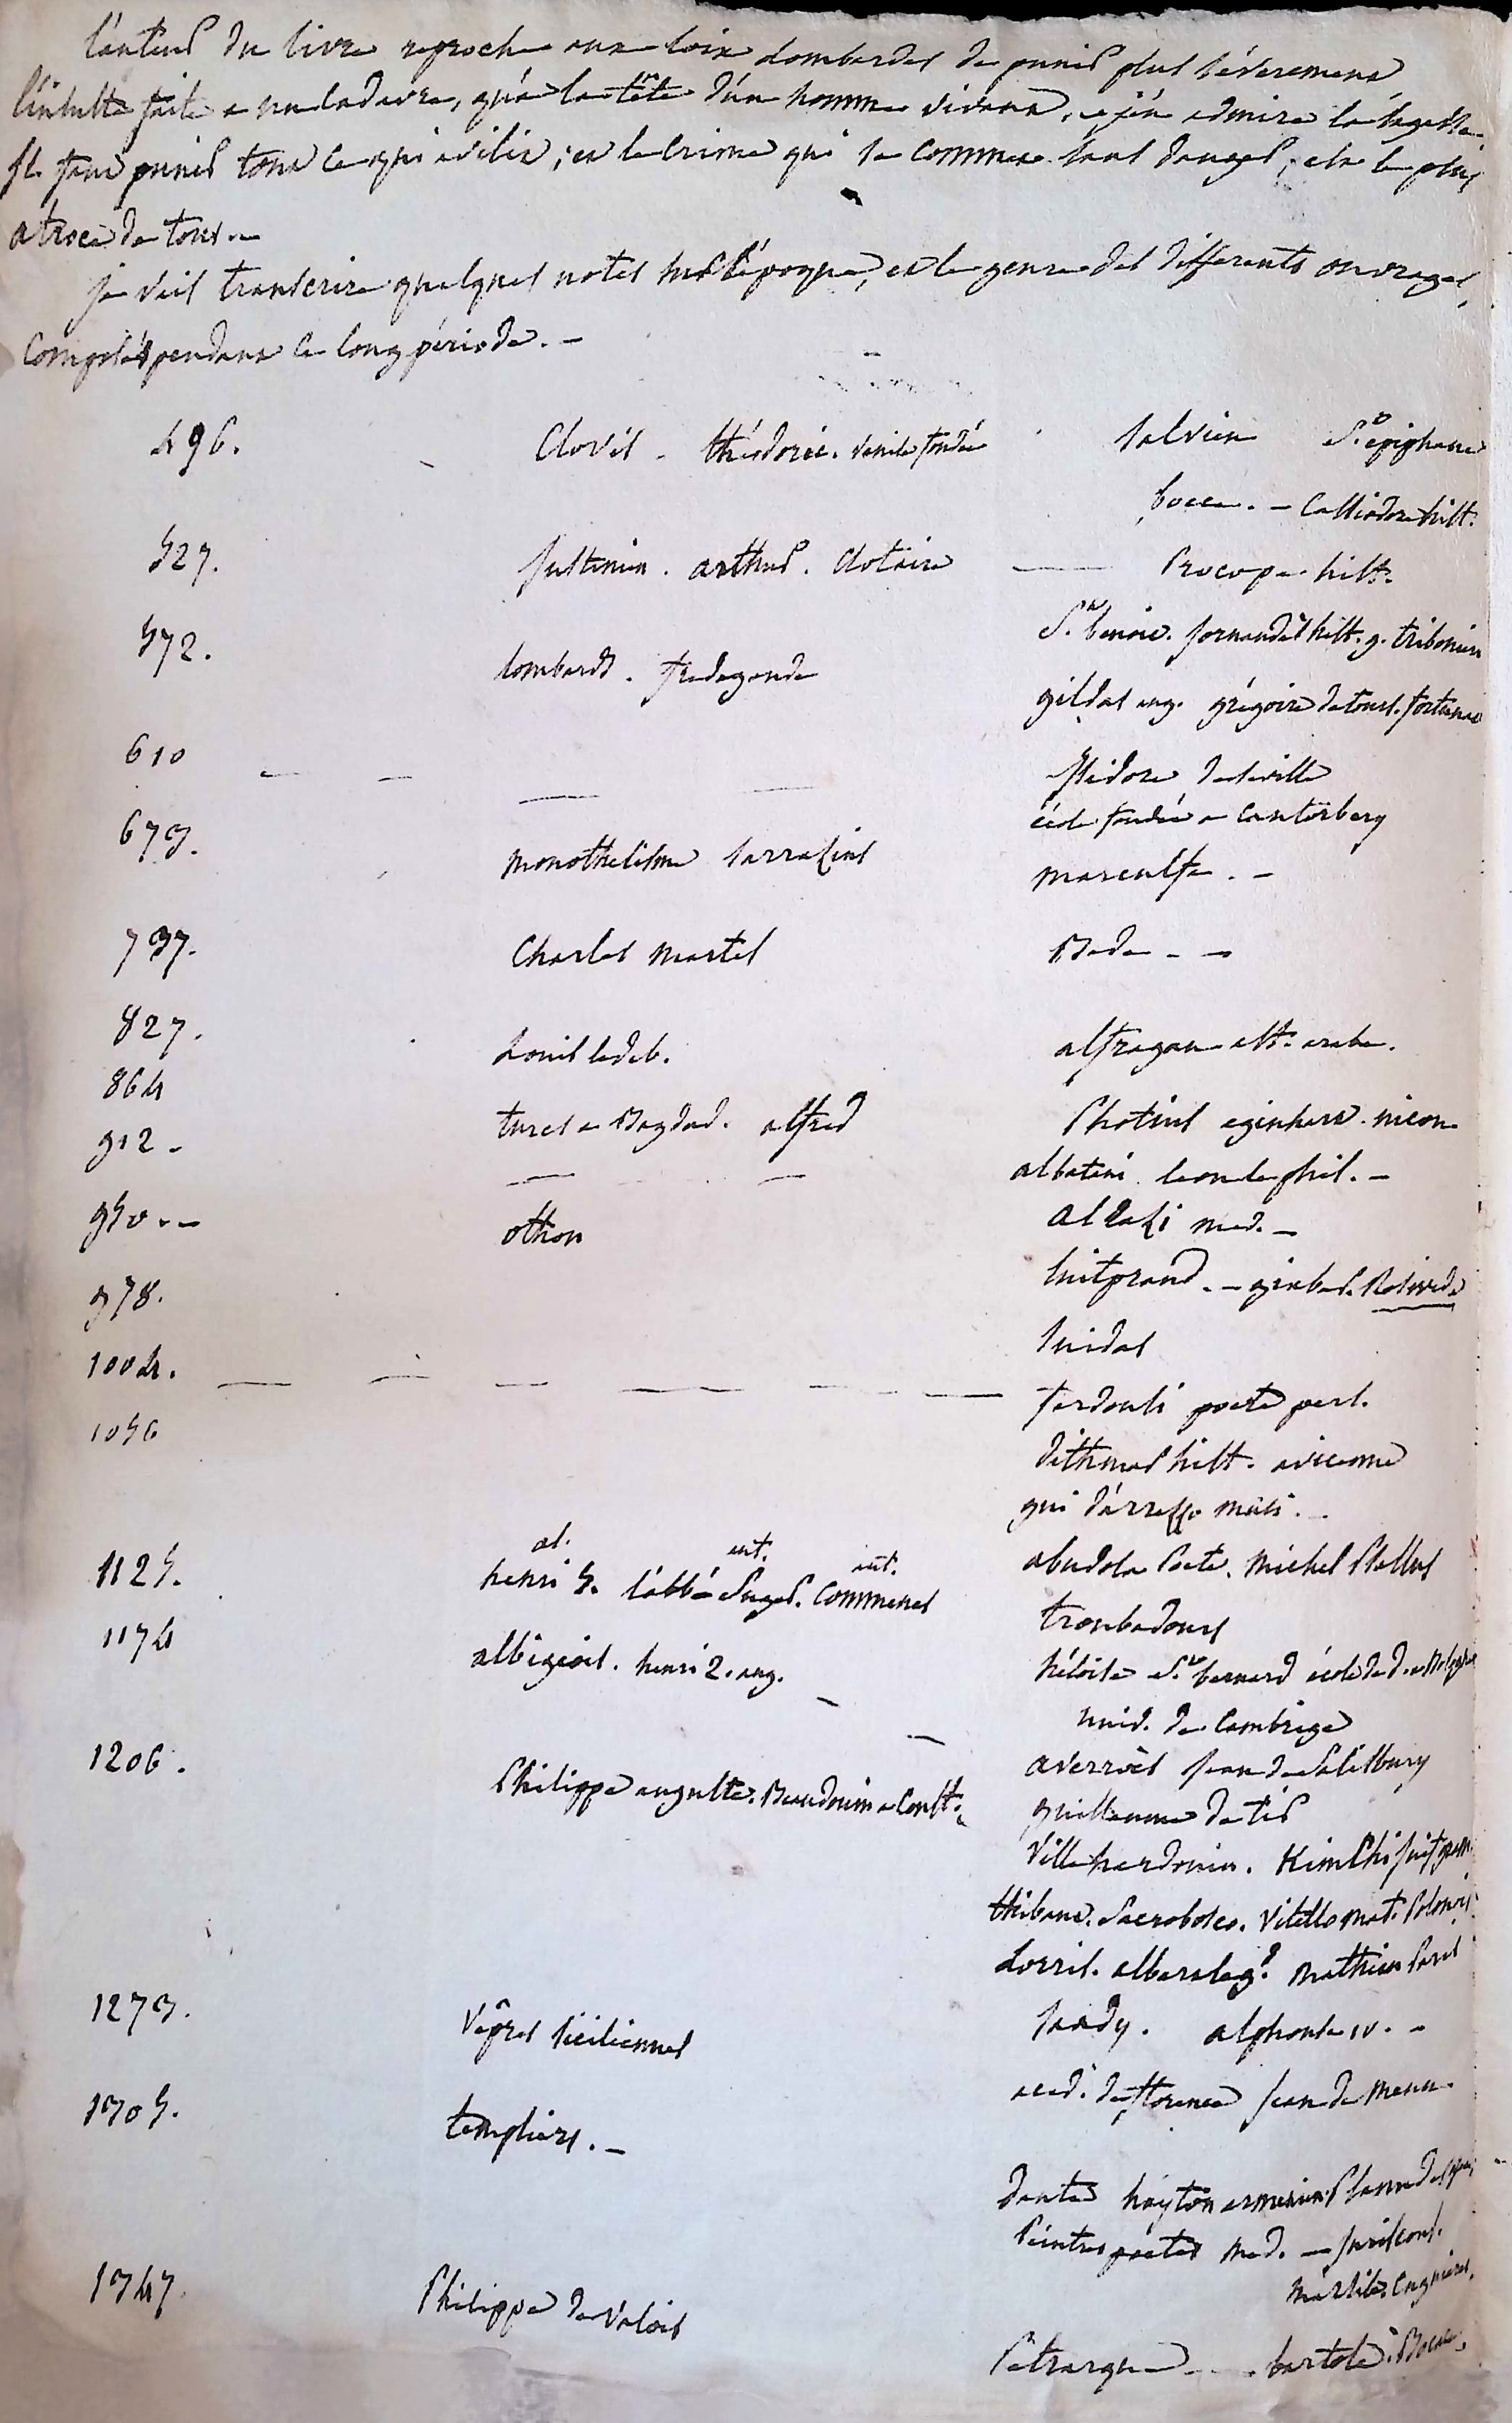 l'auteur du livre reproche aux loix Lombardes de punir plus séverement
l'insulte faite a un cadavre, qu'a la tête d'un homme vivant, et j'en admire la sagesse.
il faut punir tout ce qui avilit ; et le crime qui se commet sans danger, est le plus
atroce de tous. –
je vais transcrire quelques notes sur l'époque, et le genre des differents ouvrages,
composés pendant ce long période. –
496. Clovis – théodoric. Venise fondée Salvien St. épiphane
boece. – Cassiodore hist.
527. Justinien. arthur. Clotaire Procope hist.
572. Lombards. fredegonde St. benoit. Jornandès hist. g. tribonien
gildas ang. grégoire de tours. fortunat
610 Isidore de seville
673. monothelisme sarrasins école fondée a Cantorbery
marculfe. –
737. Charles martel Bede – –
827. Louis le deb. alfragan ast. arabe.
864 turcs a Bagdad. alfred Photius eginhart. nicon
912 – albateni leon le phil. –
950 . – othon Al Rasi med. –
978. luitprand. – gerbert. Rosvida
1004. suidas
1056 ferdousi poete pers.
dithmar hist. avicenne
gui d'arezzo musi.
1125. al. ent. ent.
henri 5. l'abbé Suger. Commenes abudola Poete. Michel Psellus
troubadours
1174 albigeois. henri 2. ang. héloise St. bernard école de d. a Bologne
univ. de Cambrige
1206. Philippe auguste. Beaudouin a Const. averroès Jean de Salisbury
guillaume de tir
Villehardouin. Kimchi juif gram.
thibaut. Sacrobosco. Vitello mat. Polonois
Lorris. albert le gd. Mathieu Paris
1273. Vêpres siciliennes saady. alphonse 10. –
1305. templiers. – acad. de florence jean de meun.
dante hayton armenien Planude
Peintres poetes med. – jurisconf.
1347. Philippe de Valois
Petrarque bartole. Bocace